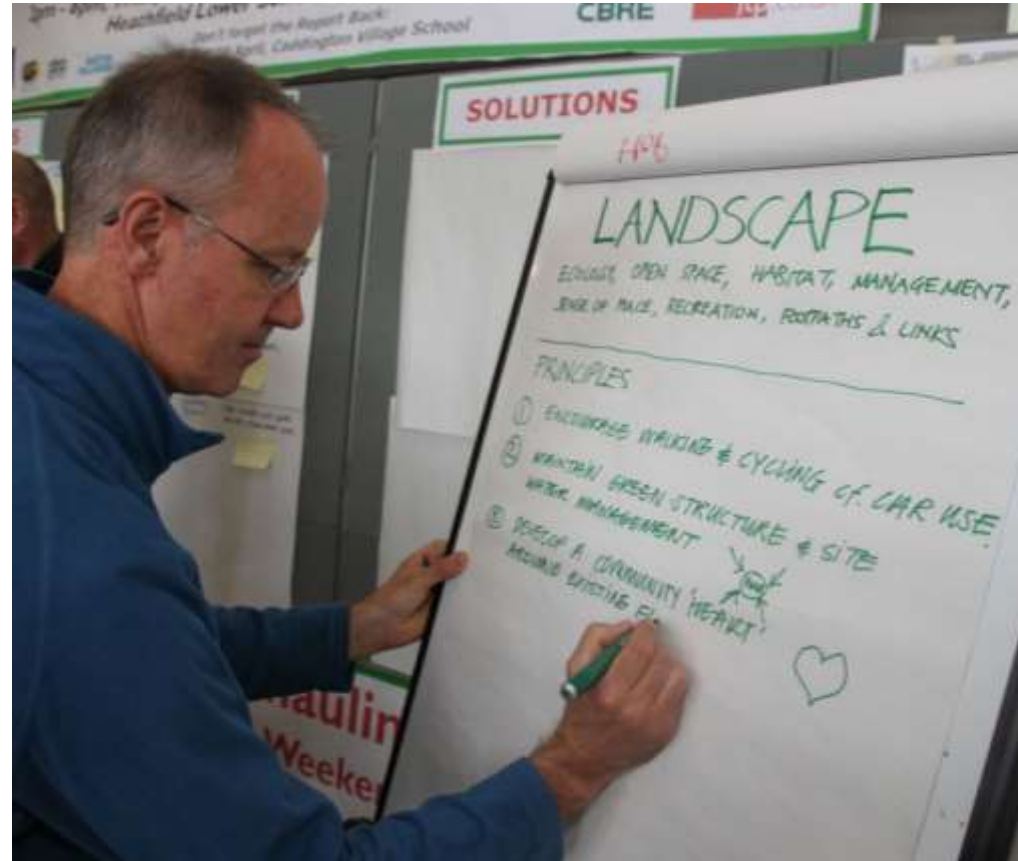 Heathfield Lower
Don't forget the Report Back:
April, Caddington Village School
CBRE
SOLUTIONS
HP6
LANDSCAPE
ECOLOGY, OPEN SPACE, HABITAT, MANAGEMENT,
SENSE OF PLACE, RECREATION, FOOTPATHS & LINKS
PRINCIPLES
① ENCOURAGE WALKING & CYCLING cf. CAR USE.
② MAINTAIN GREEN STRUCTURE & SITE
WATER MANAGEMENT
③ DEVELOP A COMMUNITY 'HEART'
AROUND EXISTING
aulin
Weeke